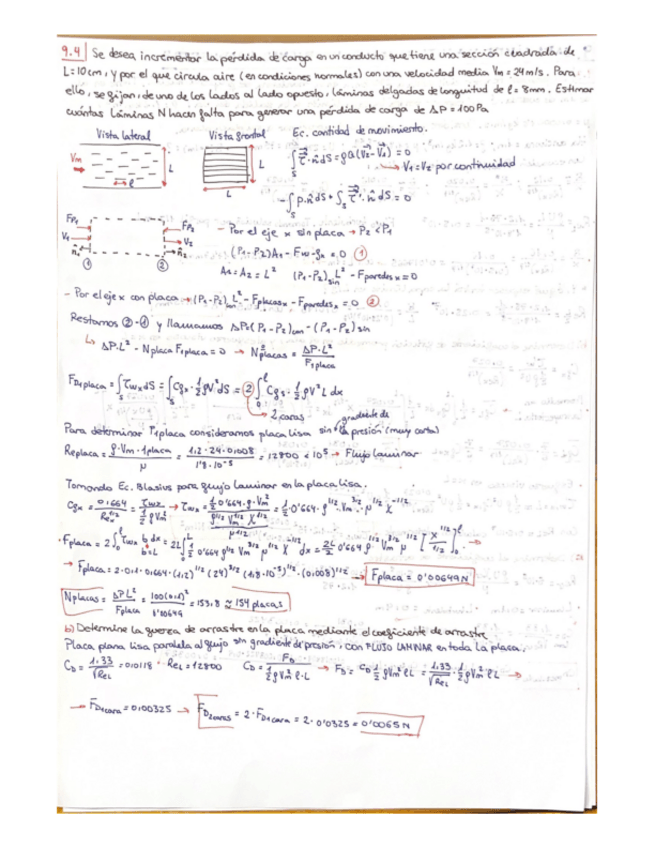 9.4 Se desea incrementar la pérdida de carga en un conducto que tiene una sección cuadrada de
L=10cm, y por el que circula aire (en condiciones normales) con una velocidad media Vm = 24m/s. Para
ello, se fijan, de uno de los lados al lado opuesto, láminas delgadas de longitud de ℓ = 8mm. Estimar
cuántas láminas N hacen falta para generar una pérdida de carga de ΔP = 100Pa
Vista lateral Vista frontal Ec. cantidad de movimiento.
Vm L ℓ L L
∫s τ·n dS = ρQ(V2-V1) = 0
→ V1=V2 por continuidad
-∫s p·n dS + ∫s τ'·n dS = 0
FP1 V1 n1 ① FP2 V2 n2 ②
- Por el eje x sin placa → P2 < P1
(P1-P2)A1 - Fw-gx = 0 ①
A1=A2=L² (P1-P2)sin L² - Fparedesx = 0
- Por el eje x con placa → (P1-P2)con L² - Fplacasx - Fparedesx = 0 ②
Restamos ②-① y llamamos ΔP=(P1-P2)con - (P1-P2)sin
↳ ΔP·L² - Nplaca F1placa = 0 → Nplacas = ΔP·L² / F1placa
FD1placa = ∫s τwx dS = ∫s Cfx · 1/2 ρV² dS = 2 ∫0^ℓ Cfx · 1/2 ρV² L dx
→ 2 caras
Para determinar F1placa consideramos placa lisa sin gradiente de la presión (muy corta)
Replaca = ρ·Vm·1placa / μ = 1,2·24·0,008 / 1'8·10⁻⁵ = 12800 < 10⁵ → Flujo laminar
Tomando Ec. Blasius para flujo laminar en la placa lisa.
Cfx = 0,664 / Rex^1/2 = τwx / 1/2 ρVm² → τwx = 1/2 0'664·ρ·Vm² / (ρ^1/2 Vm^1/2 X^1/2 / μ^1/2) = 1/2·0'664·ρ^1/2·Vm^3/2·μ^1/2 X^-1/2
· Fplaca = 2∫0^ℓ τwx b dx = 2L∫0^L 1/2 0'664 ρ^1/2 Vm^3/2 μ^1/2 X^-1/2 dx = 2L/2 0'664 ρ^1/2 Vm^3/2 μ^1/2 [X^1/2 / 1/2]0^ℓ →
b=L
→ Fplaca = 2·0,1·0,664·(1,2)^1/2 (24)^3/2 (1,8·10⁻⁵)^1/2·(0,008)^1/2 → Fplaca = 0'00649N
Nplacas = ΔPL² / Fplaca = 100(0,1)² / 1'00649 = 153,8 ≈ 154 placas
b) Determine la fuerza de arrastre en la placa mediante el coeficiente de arrastre
Placa plana lisa paralela al flujo sin gradiente de presión, con FLUJO LAMINAR en toda la placa.
CD = 1,33 / √ReL = 0,0118 · ReL = 12800 CD = FD / 1/2 ρVm² ℓ·L → FD = CD 1/2 ρVm² ℓL = 1,33 / √ReL · 1/2 ρVm² ℓL →
→ FD1cara = 0,00325 → FD2caras = 2·FD1cara = 2·0'0325 = 0'0065N